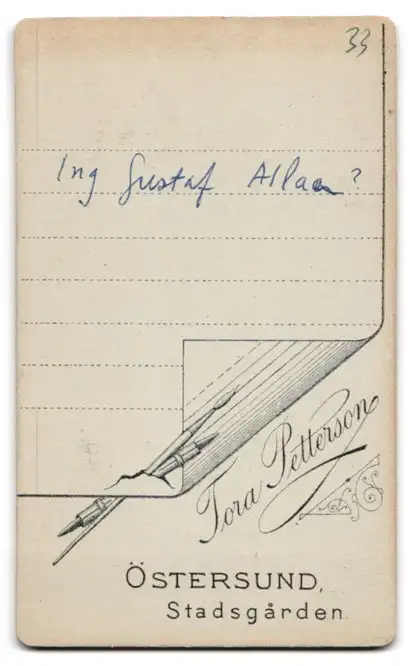 33
Ing Gustaf Allan?
Tora Petterson
ÖSTERSUND,
Stadsgården.